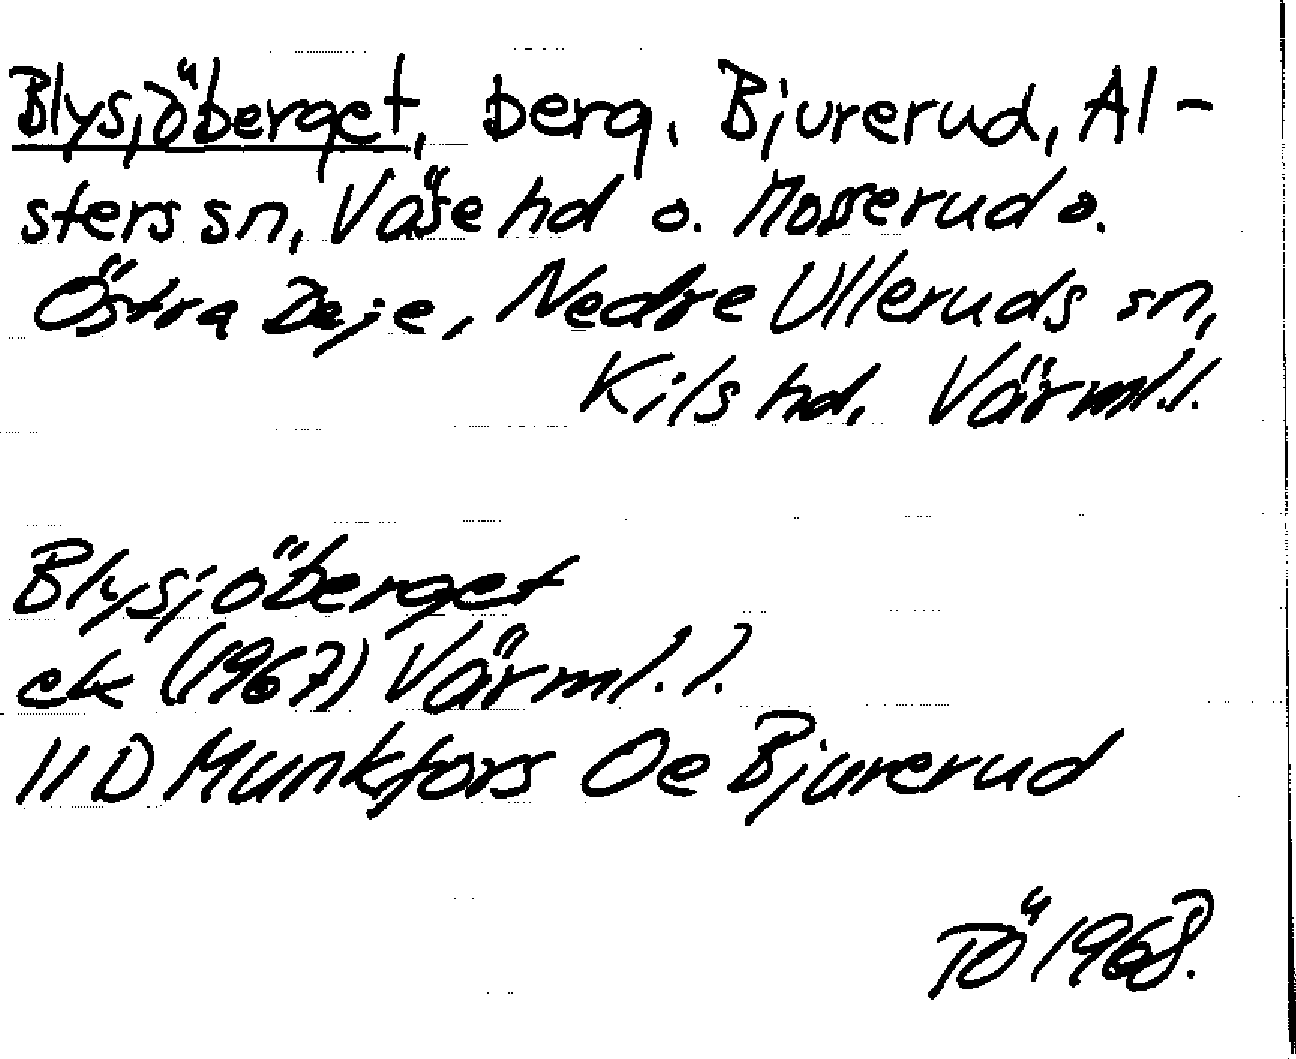 Blysjöberget, berg. Bjurerud, Al-
sters sn, Väse hd o. Mosserud o.
Östra Deje, Nedre Ulleruds sn,
Kils hd. Värml.l.
Blysjöberget
ek (1967) Värml.l.
11D Munkfors Oe Bjurerud
TÖ 1968.